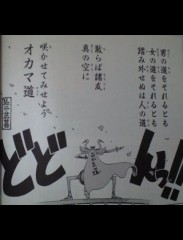 男の道をそれるとも
女の道をそれるとも
踏み外せぬは人の道
散らば諸友
真の空に
咲かせてみせよう
オカマ道
どどんっ!!